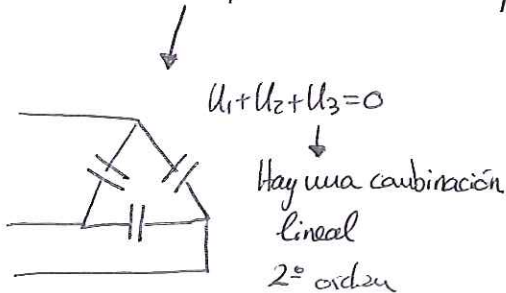 U₁+U₂+U₃=0
Hay una combinación
lineal
2º orden